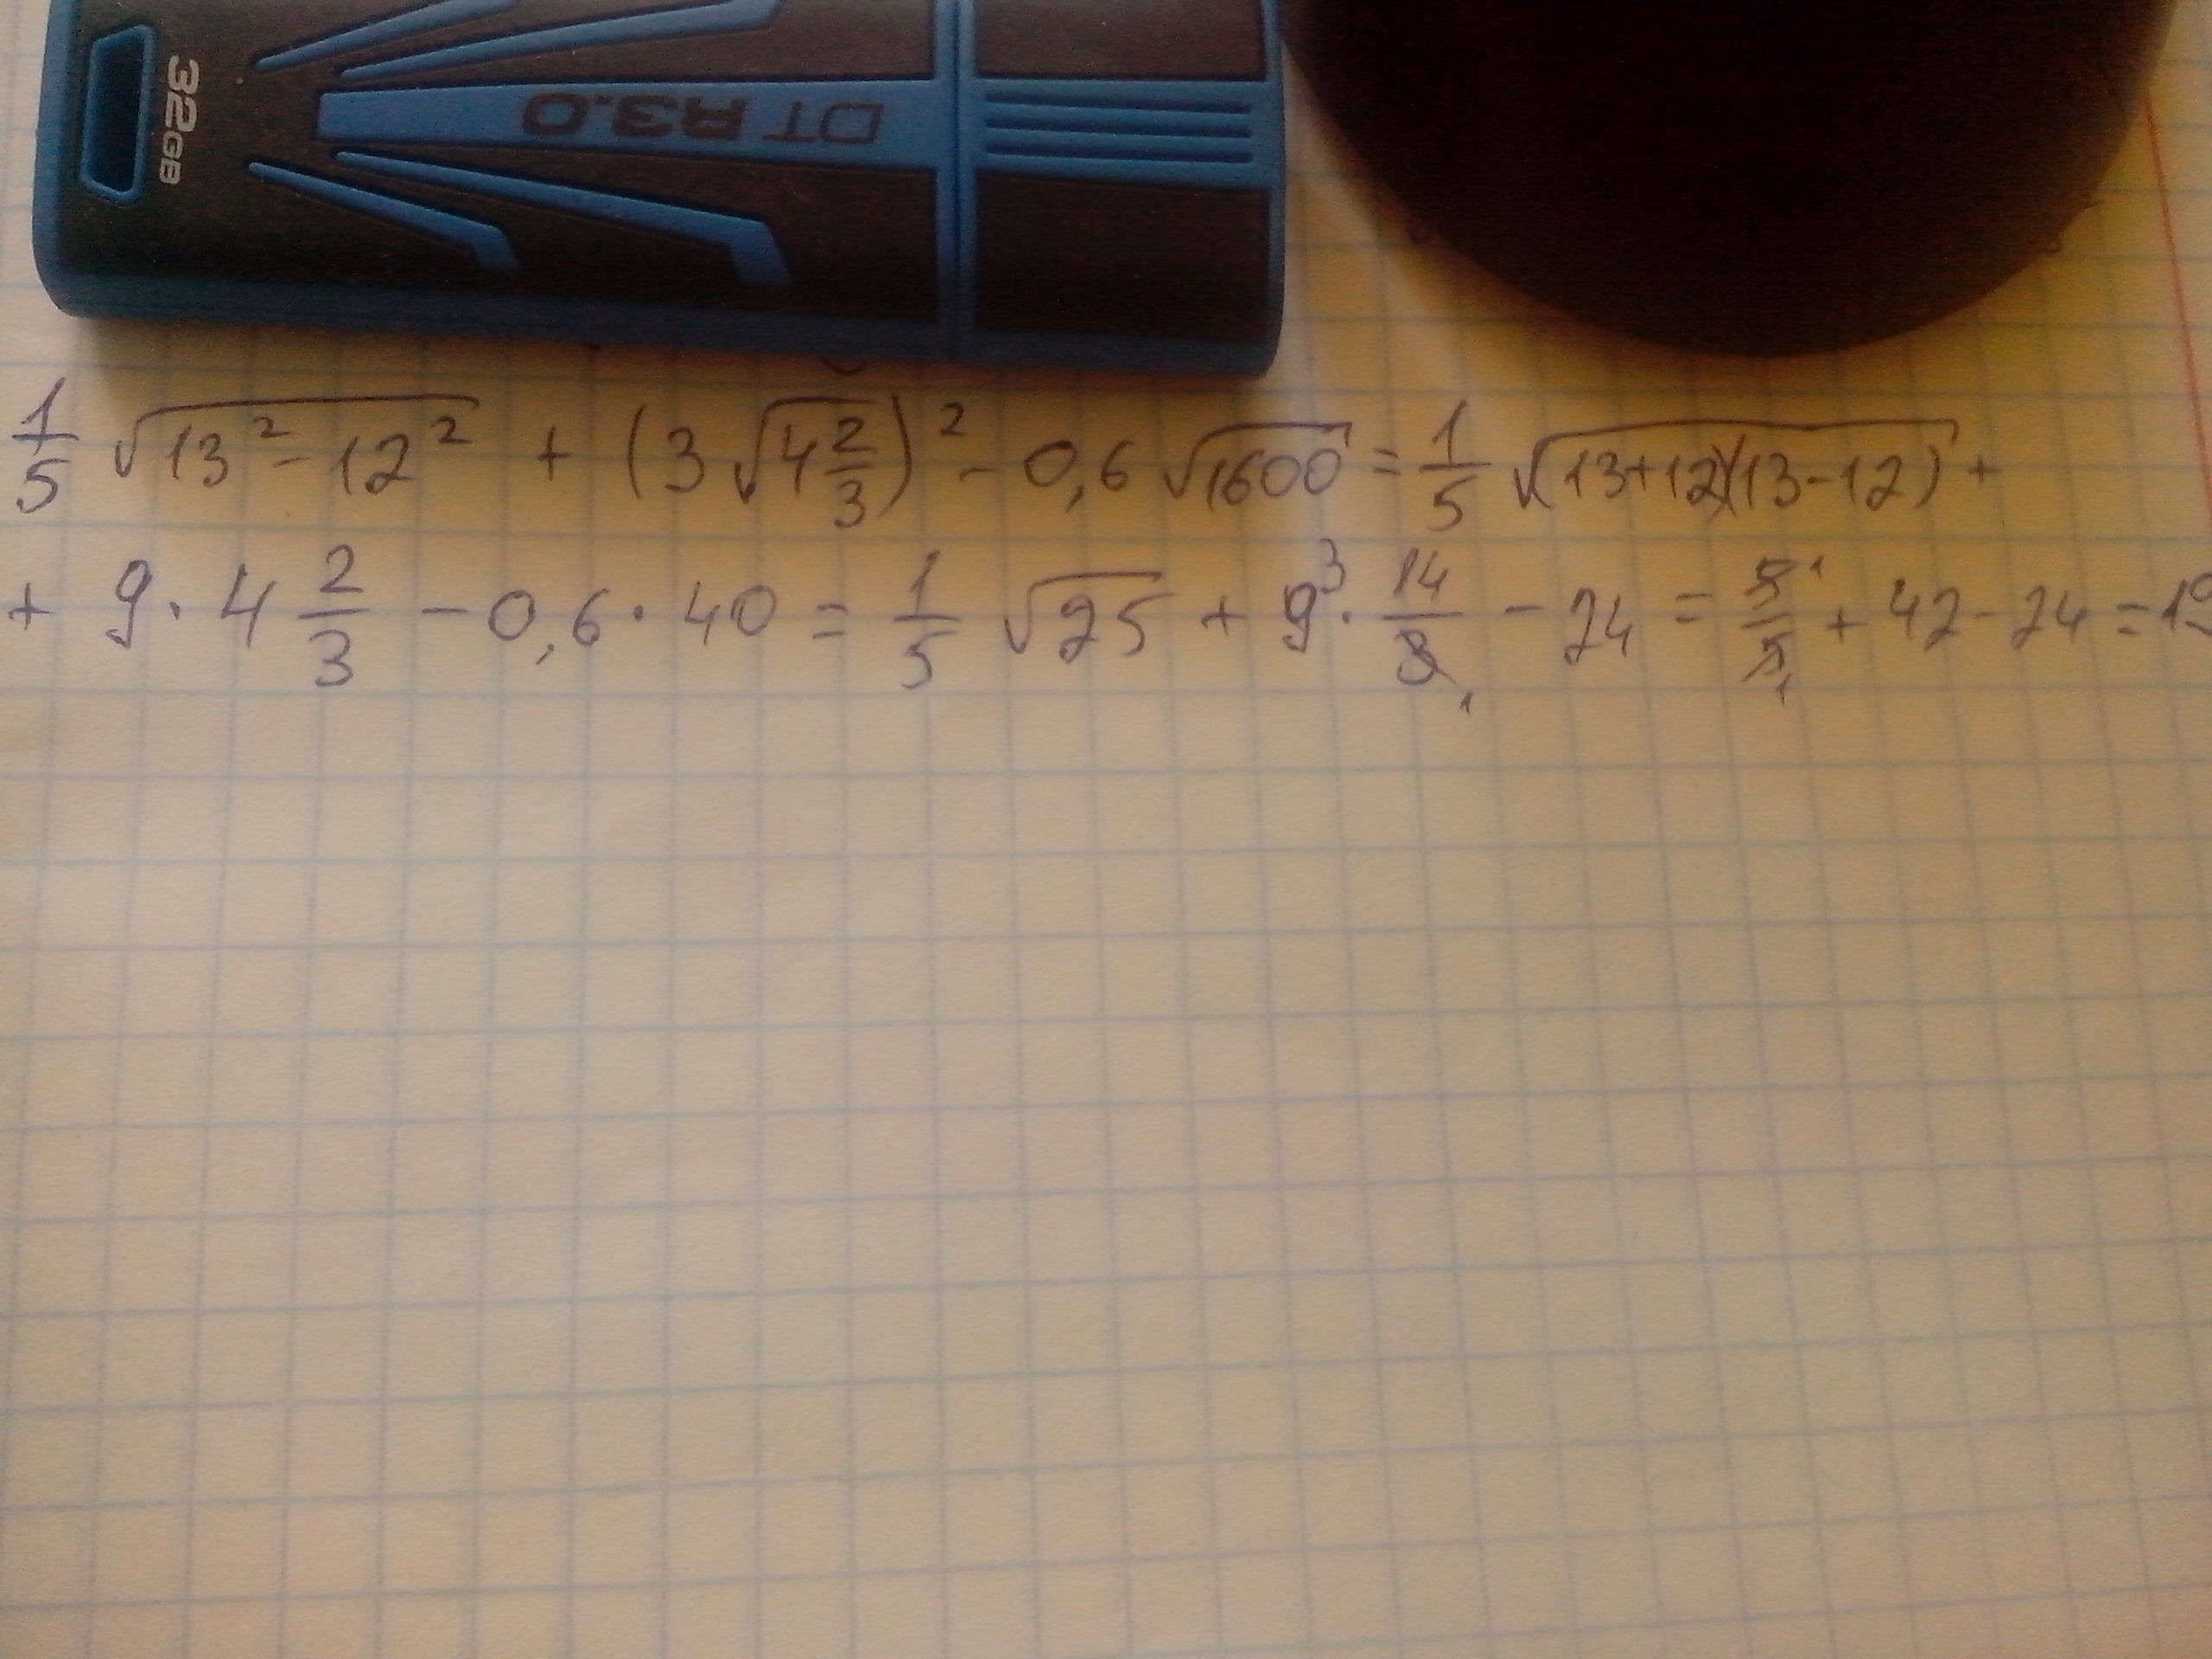 32GB
DT R3.0
1/5 √(13² - 12²) + (3√(4 2/3))² - 0,6 √1600 = 1/5 √((13+12)(13-12)) +
+ 9 · 4 2/3 - 0,6 · 40 = 1/5 √25 + 9³ · 14/3₁ - 24 = 5¹/5₁ + 42 - 24 = 19